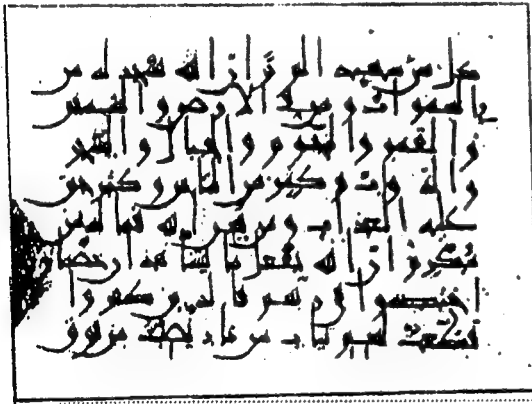 كل شى شهيد الم تر ان الله يسجد له من
في السموات ومن في الارض والشمس
والقمر والنجوم والجبال والشجر
والدواب وكثير من الناس وكثير حق
عليه العذاب ومن يهن الله فما له من
مكرم ان الله يفعل ما يشا هذان خصمان
اختصموا في ربهم فالذين كفروا
قطعت لهم ثياب من نار يصب من فوق